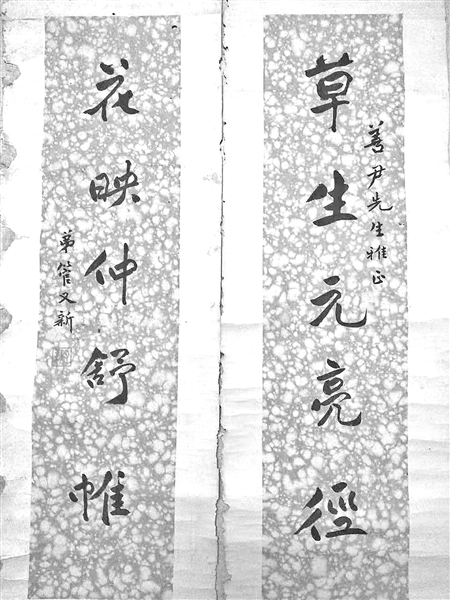 草生元亮徑
善尹先生雅正
花映仲舒帷
弟管又新